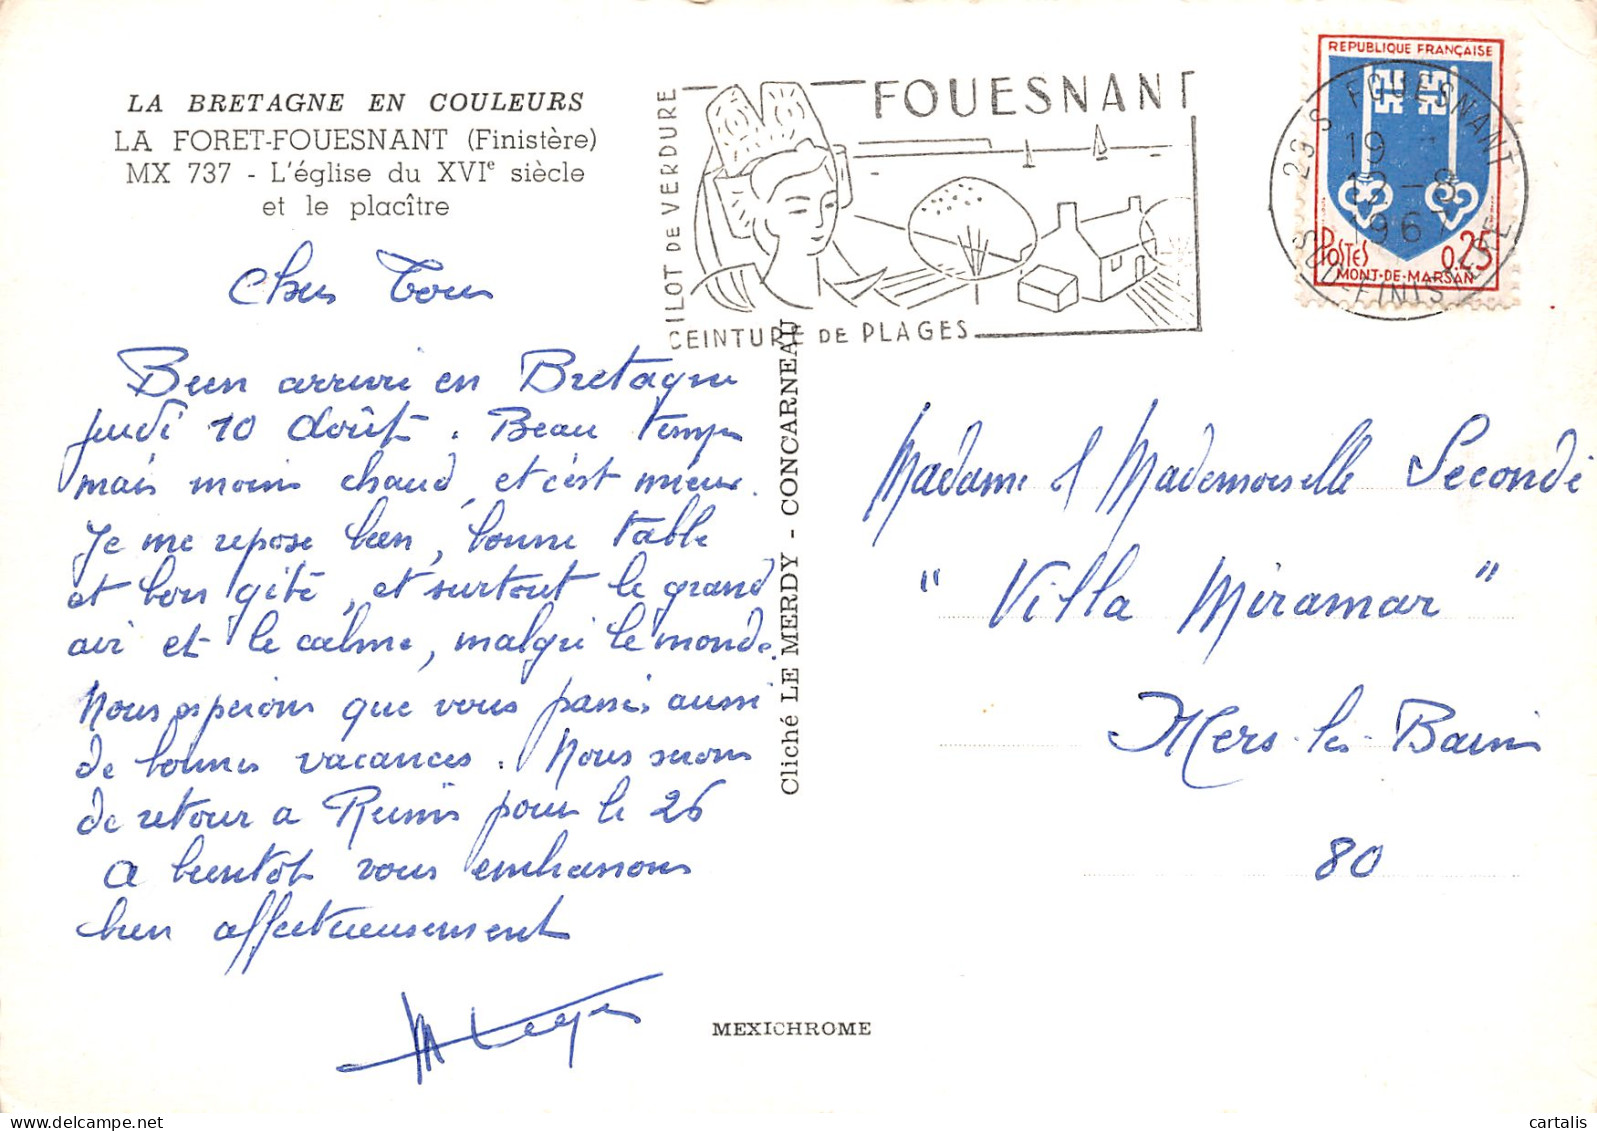 LA BRETAGNE EN COULEURS
LA FORET-FOUESNANT (Finistère)
MX 737 - L'église du XVIe siècle
et le placître
Chers Tous
Bien arrivé en Bretagne
jeudi 10 Août. Beau temps
mais moins chaud, et c'est mieux.
Je me repose bien, bonne table
et bon gîte, et surtout le grand
air et le calme, malgré le monde.
Nous espérons que vous passez aussi
de bonnes vacances. Nous serons
de retour a Reims pour le 26
A bientôt vous embrassons
bien affectueusement
MEXICHROME
Cliché LE MERDY - CONCARNEAU
FOUESNANT
ILOT DE VERDURE
CEINTURE DE PLAGES
REPUBLIQUE FRANÇAISE
POSTES 0,25
MONT-DE-MARSAN
29 S FOUESNANT
19 H
12 - 8
1967
SUD-FINISTERE
Madame & Mademoiselle Secondé
"Villa Miramar"
Mers-les-Bains
80
cartalis